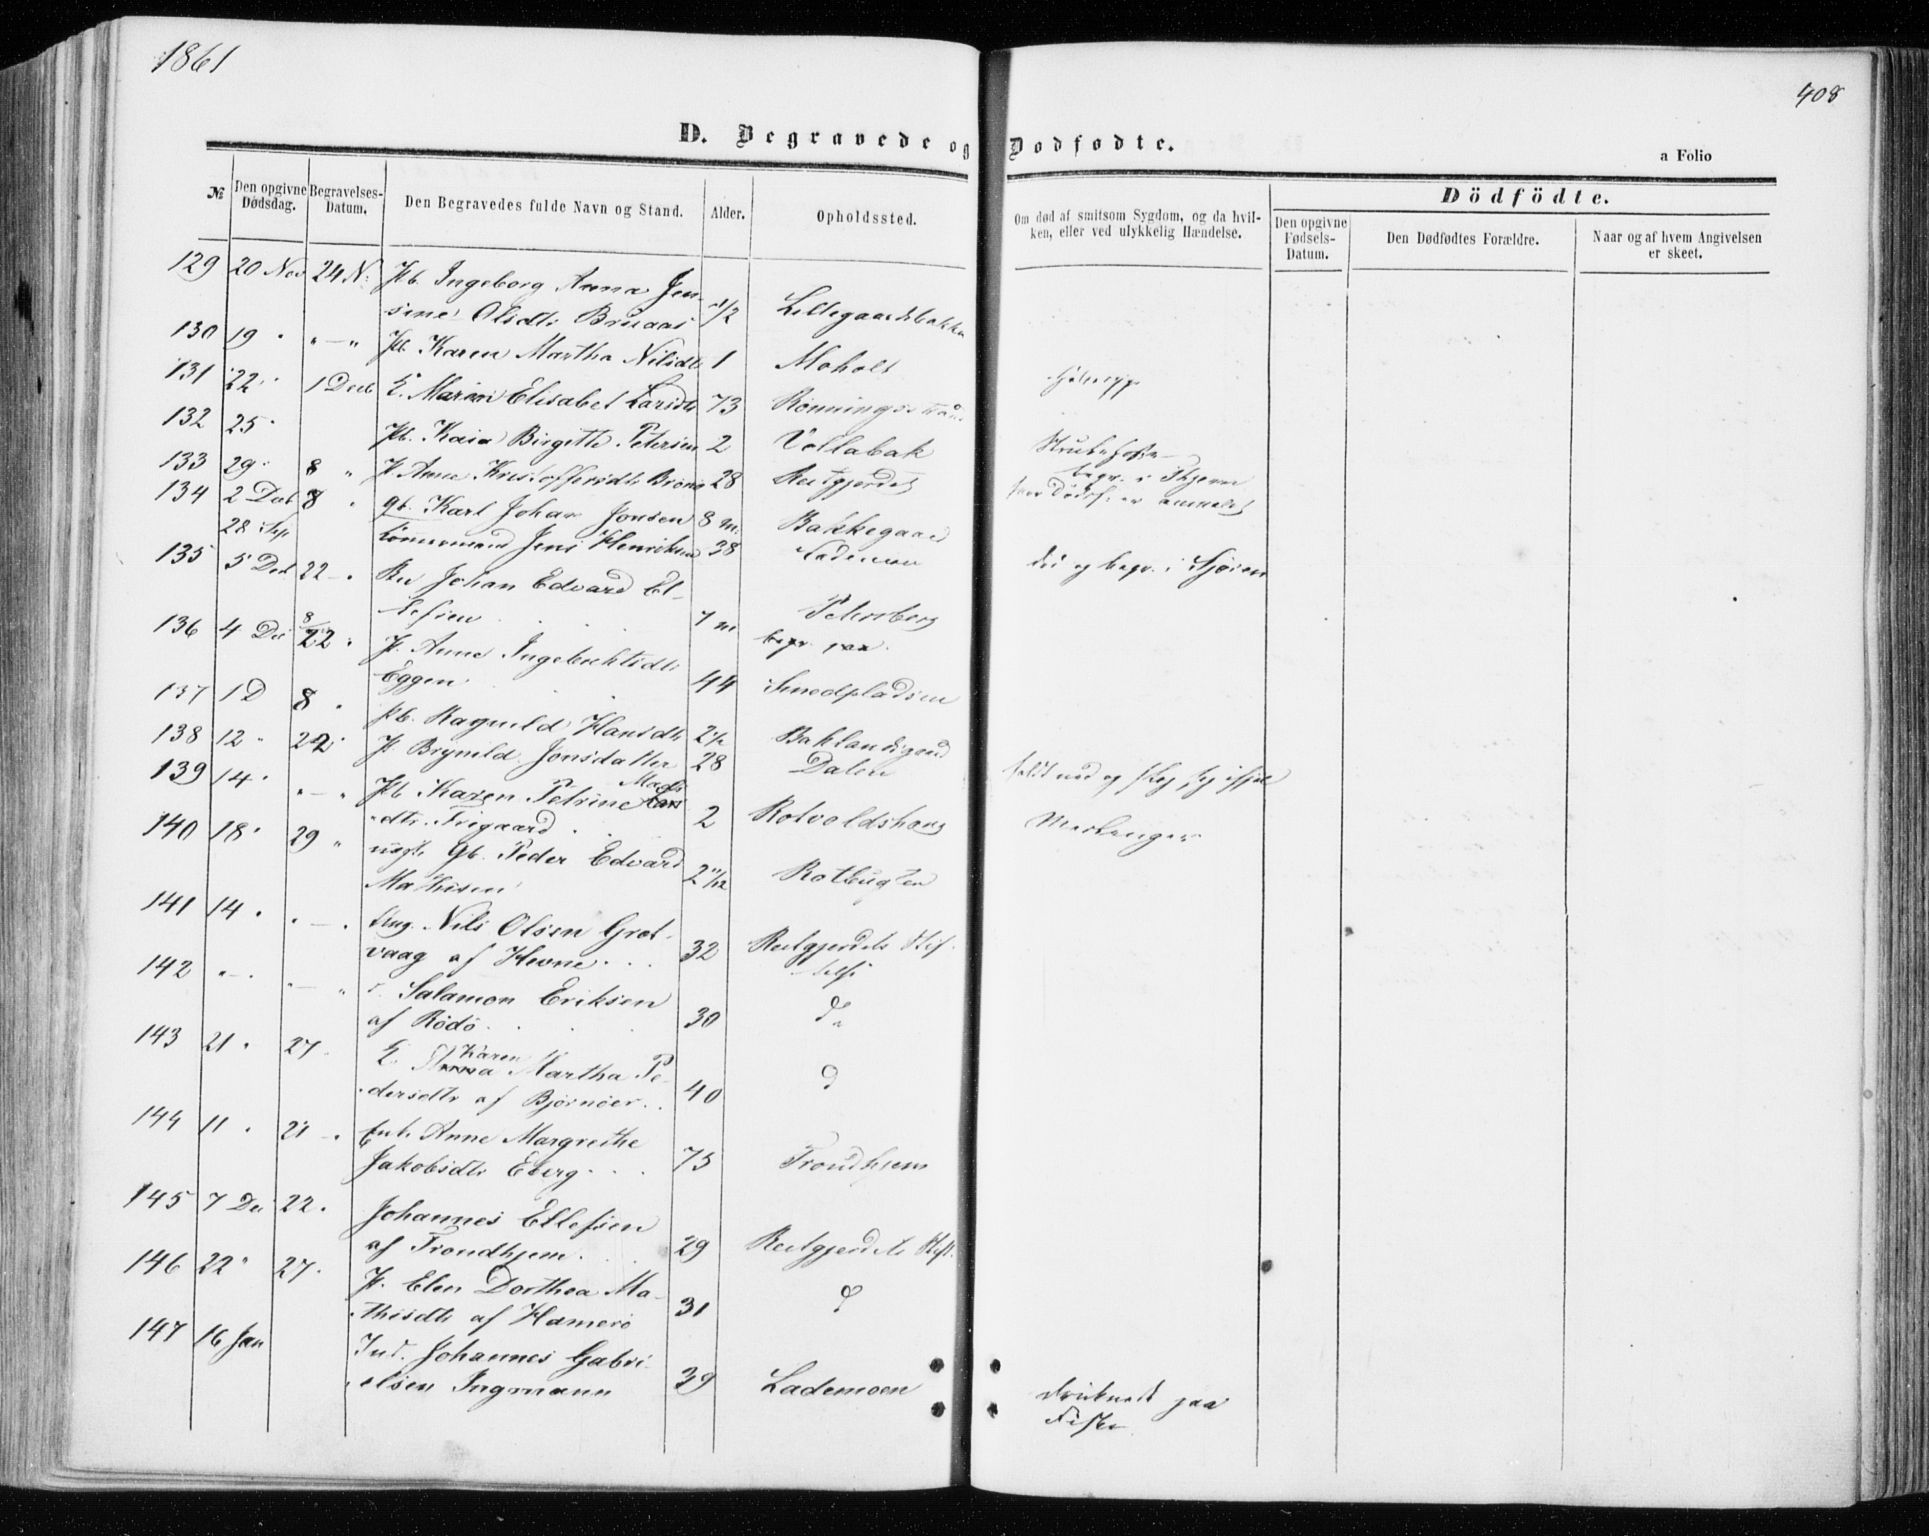 1861
408
D. Begravede og Dødfødte.
a Folio
№ Den opgivne Dødsdag. Begravelses-Datum. Den Begravedes fulde Navn og Stand. Alder. Opholdssted. Om død af smitsom Sygdom, og da hvilken, eller ved ulykkelig Hændelse.
Dödfödte.
Den opgivne Fødsels-Datum. Den Dødfødtes Forældre. Naar og af hvem Angivelsen er skeet.
129 20 Nov 24 N. Pb. Ingeborg Anna Jen-
sine Olsdtr Bruaas 1/2 Lillegaardsbakken
130 19 " " — " Pb. Karen Martha Nilsdtr 1 Moholt
131 22 " 1 Decb E. Maren Elisabet Larsdtr 73 Rønnings
132 25 " Pb. Kaia Birgitte Petersen 2 Vollabak Strubehoste
133 29 " 8 " P. Anne Kristoffersdtr 28 Reitgjerdet begr. i
134 2 Decb 8 " gb. Karl Johan Jonsen 8 m. Bakkegaard
28 Sep Tømmermand Jens Henriksen 38 Lademoen død og begr. i
135 5 Dec 22 — " Johan Edvard El-
lefsen . . . 7 m Petersborg
136 4 De 8/22 " P. Anne Ingebrektsdtr begr.
Eggen . . . 44 Smedpladsen
137 1 D 8 " pb. Ragnild Hansdtr 2 1/2 Baklandsgrend
138 12 " 22 P. Brynild Jonsdatter 28 Dalen faldt ned og slog sig ihjel
139 14 " " — " Pb Karen Petrine Mads
dtr. Trigaard . 2 Rotvoldshaug Meslinger
140 18 " 29 " uægte Gb. Peder Edvard
Mathisen 2 11/12 Rotbugten
141 14 " " — " Ung. Nils Olsen Grot-
vaag af Hevne . . . 32 Reitgjerdets Stif-
telse
142 " — " " — " d. Salamon Eriksen
af Rödö . . . 30 do
143 21 " 27 " E. Karen
Martha Pe-
dersdtr af Bjørnöer . . 40 d
144 11 " 21 — " Enk. Anne Margrethe
Jakobsdtr Eberg . . . 75 Trondhjem
145 7 De 22 " Johannes Ellefsen
af Trondhjem . . . 29 Reitgjerdets Stift.
146 22 " 27 " P. Elen Dorthea Ma-
thisdtr af Hamerö 31 d
147 16 Jan Ind. Johannes Gabri-
elsen Ingmann 39 Lademoen druknede paa
Fiske